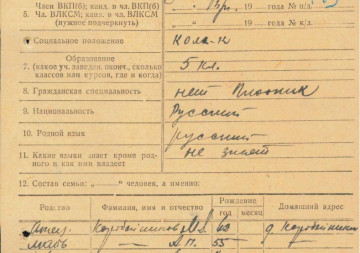 Член ВКП(б); канд. в чл. ВКП(б)
5. Чл. ВЛКСМ; канд. в чл. ВЛКСМ
(нужное подчеркнуть)
19 года № п/д.
19 года № к/д.
6 Социальное положение
Колх-к
Образование
7. (какое уч. заведен. оконч., сколько
классов или курсов, где и когда)
5 кл.
8. Гражданская специальность
нет Плотник
9. Национальность
Русский
10. Родной язык
русский
11. Какие языки знает кроме род-
ного и как ими владеет
не знает
12. Состав семьи: „ “ человек, а именно:
Родство Фамилия, имя и отчество Рождение Домашний адрес
год месяц
отец Коробейников 63 д. Коробейники
мать — 55 —